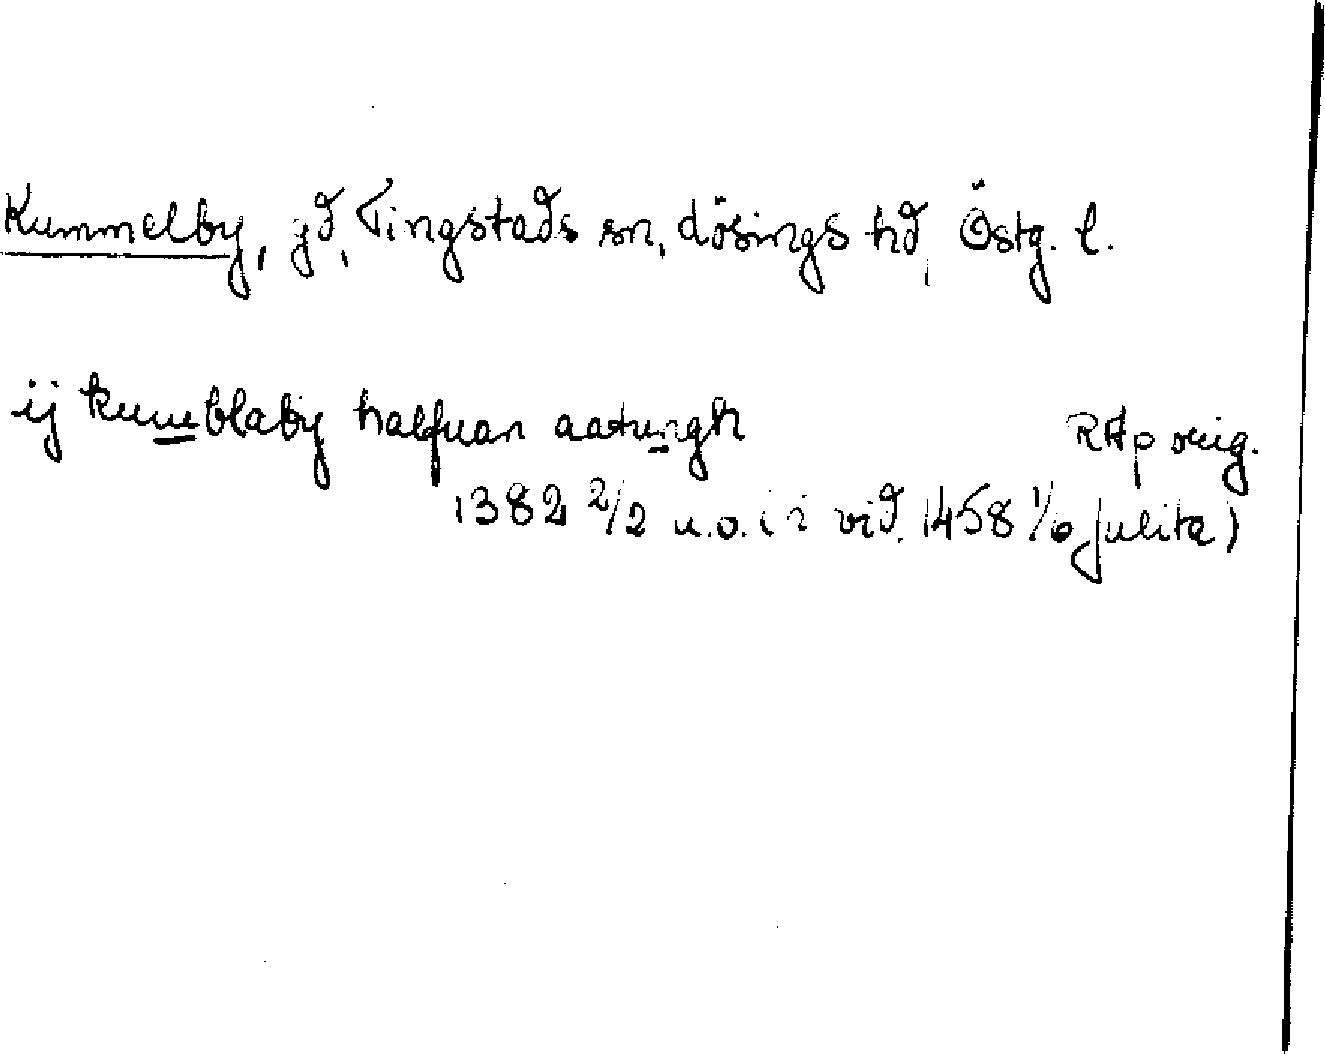 Kummelby, gd, Tingstads sn, Lösings hd, Östg. l.
ij kumblaby halfuan aatungh RAp orig.
1382 2/2 u.o. (i vid. 1458 1/6 Julita)